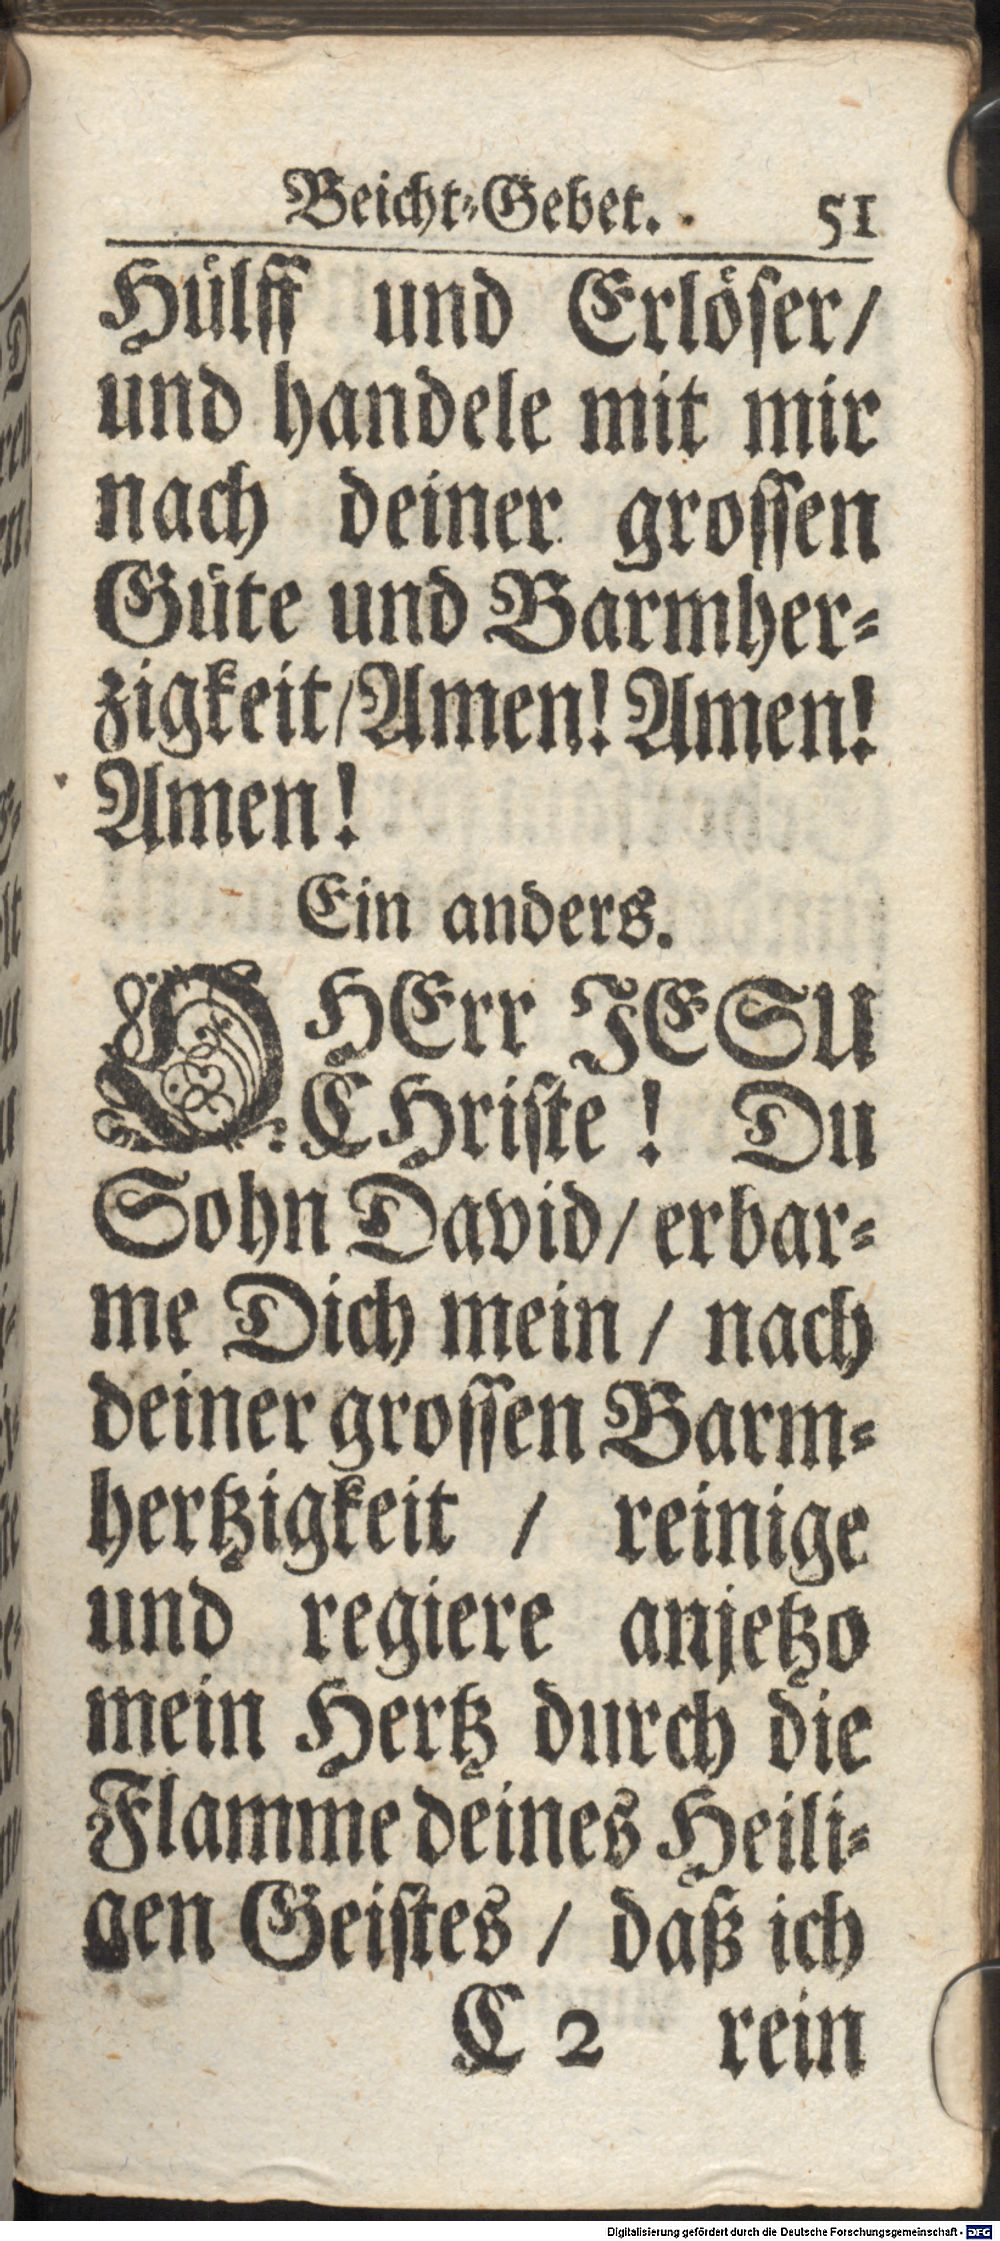 Beicht-Gebet. 51
Hülff und Erlöser/
und handele mit mir
nach deiner grossen
Güte und Barmher-
zigkeit/Amen! Amen!
Amen!
Ein anders.
O HErr JESU
CHriste! Du
Sohn David/ erbar-
me Dich mein / nach
deiner grossen Barm-
hertzigkeit / reinige
und regiere anjetzo
mein Hertz durch die
Flamme deines Heili-
gen Geistes / daß ich
C 2 rein
Digitalisierung gefördert durch die Deutsche Forschungsgemeinschaft - DFG